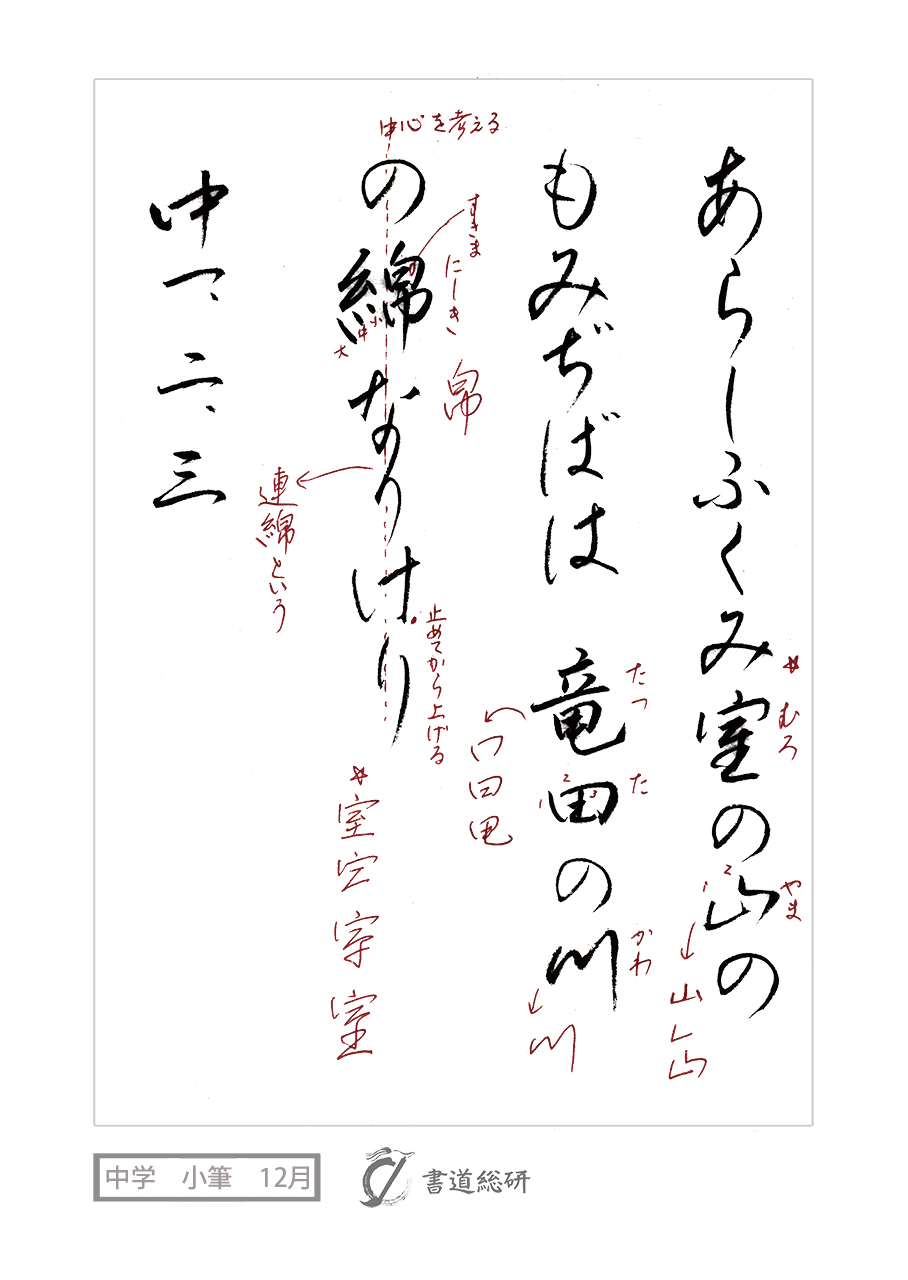 あらしふくみ室の山の
もみぢばは 竜田の川
の綿なりけり
中一、二、三
中心を考える
すきま
にしき
帛
大
中
小
連綿という
止めてから上げる
☆むろ
やま
山
山
たつ
た
かわ
川
☆室
室
中学 小筆 12月
書道総研